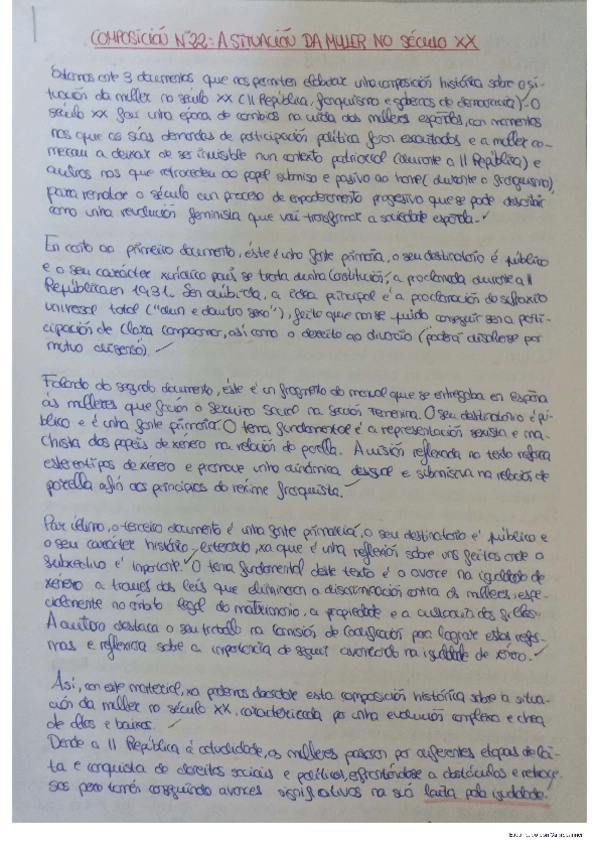 COMPOSICIÓN Nº22: A SITUACIÓN DA MULLER NO SÉCULO XX
Estamos ante 3 documentos que nos permiten elaborar unha composición histórica sobre a si-
tuación da muller no século XX (II República, franquismo e gobernos da democracia). O
século XX foi unha época de cambios na vida das mulleres españolas, con momentos
nos que as súas demandas de participación política foron escoitadas e a muller co-
menzou a deixar de ser invisible nun contexto patriarcal (durante a II República) e
outros nos que retrocedeu ao papel submiso e pasivo ao home (durante o franquismo),
para rematar o século cun proceso de empoderamento progresivo que se pode describir
como unha revolución feminista que vai transformar a sociedade española.
En canto ao primeiro documento, éste é unha fonte primaria, o seu destinatario é público
e o seu carácter xurídico pois se trata dunha Constitución, a proclamada durante a II
República en 1931. Sen dúbida, a idea principal é a proclamación do sufraxio
universal total ("dun e doutro sexo"), feito que non se puido conseguir sen a parti-
cipación de Clara Campoamor, así como o dereito ao divorcio (poderá disolverse por
mutuo disenso).
Falando do segundo documento, éste é un fragmento do manual que se entregaba en España
ás mulleres que facían o servizo social na Sección Femenina. O seu destinatario é pú-
blico e é unha fonte primaria. O tema fundamental é a representación sexista e ma-
chista dos papeis de xénero na relación de parella. A visión reflexada no texto reforza
estereotipos de xénero e promove unha dinámica desigual e submisiva na relación de
parella afín aos principios do réxime franquista.
Por último, o terceiro documento é unha fonte primaria, o seu destinatario é público e
o seu carácter histórico-literario, xa que é unha reflexión sobre uns feitos onde o
subxectivo é importante. O tema fundamental deste texto é o avance na igualdade de
xénero a traves das leis que eliminaron a discriminación contra as mulleres, espe-
cialmente no ámbito legal do matrimonio, a propiedade e a custodia dos fillos.
A autora destaca o seu traballo na Comisión de Codificación para lograr estas refor-
mas e reflexiona sobre a importancia de seguir avanzando na igualdade de xénero.
Así, con este material, xa podemos abordar esta composición histórica sobre a situa-
ción da muller no século XX, caracterizada por unha evolución complexa e chea
de altos e baixos.
Dende a II República á actualidade, as mulleres pasaron por diferentes etapas de loi-
ta e conquista de dereitos sociais e políticos, enfrontándose a obstáculos e retroce-
sos pero tamén conseguindo avances significativos na súa loita pola igualdade.